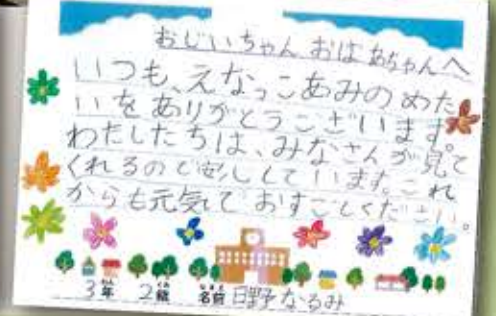 おじいちゃん おばあちゃんへ
いつも、えなっこあみのめた
いをありがとうございます。
わたしたちは、みなさんが見て
くれるので安心しています。これ
からも元気でおすごしください。
3年 2組 名前 日野なるみ